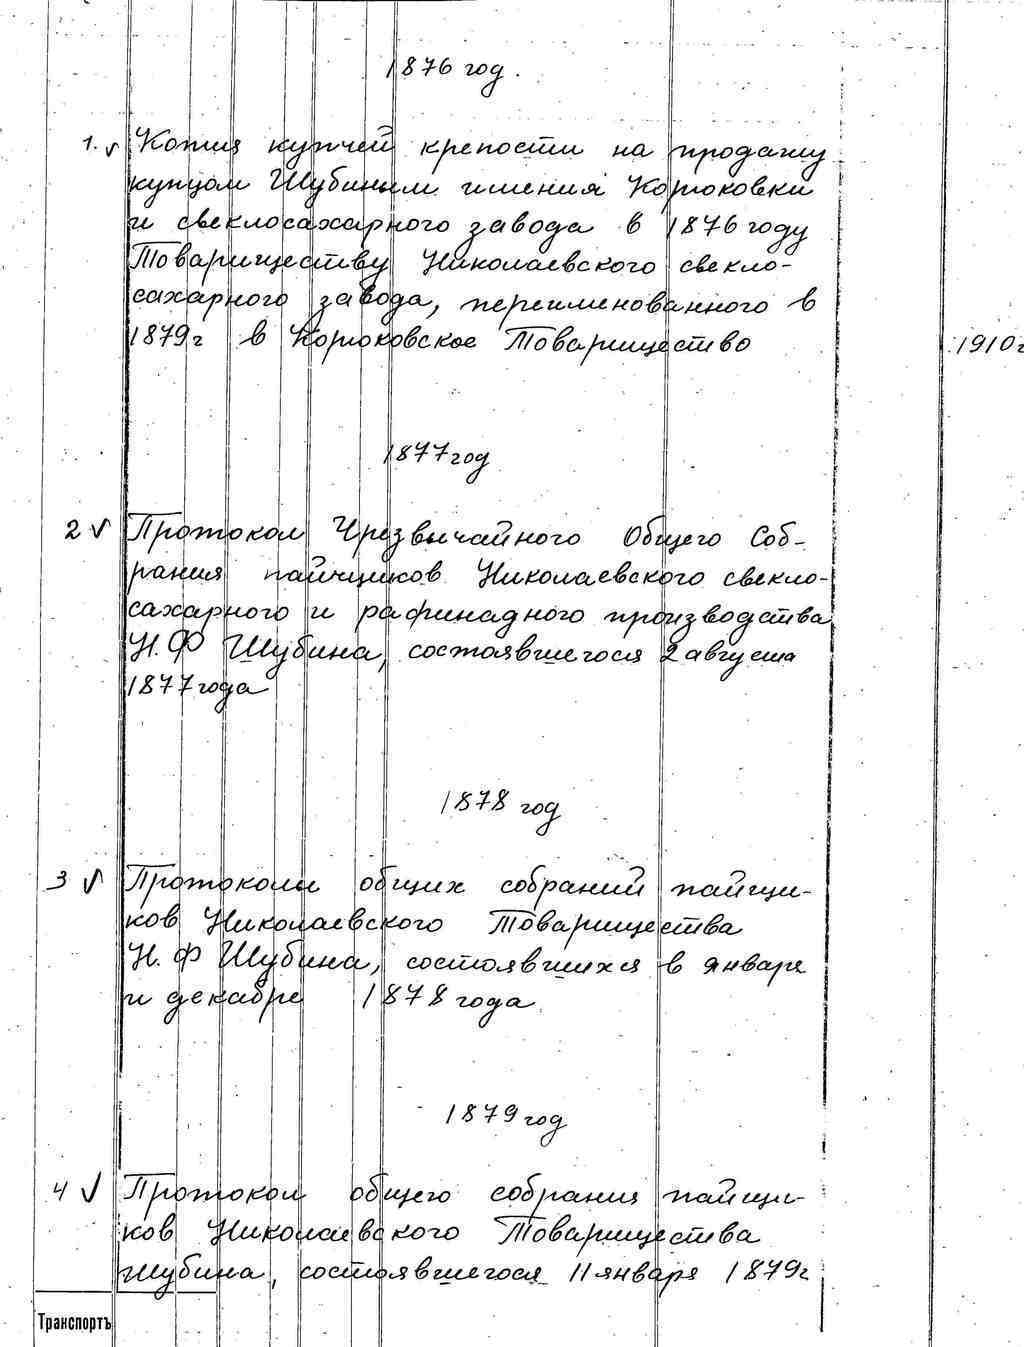 1876 год.
1. Копия купчей крепости на продажу
купцом Шубиным имения Корюковки
и свеклосахарного завода в 1876 году
Товариществу Николаевского свекло-
сахарного завода, переименованного в
1879г в Корюковское Товарищество 1910г
1877 год
2 Протокол Чрезвычайного Общего Соб-
рания пайщиков Николаевского свекло-
сахарного и рафинадного производства
Н.Ф Шубина, состоявшегося 2 августа
1877 года
1878 год
3 Протоколы общих собраний пайщи-
ков Николаевского Товарищества
Н.Ф Шубина, состоявшихся в январе
и декабре 1878 года.
1879 год
4 Протокол общего собрания пайщи-
ков Николаевского Товарищества
Шубина, состоявшегося 11 января 1879г
Транспортъ